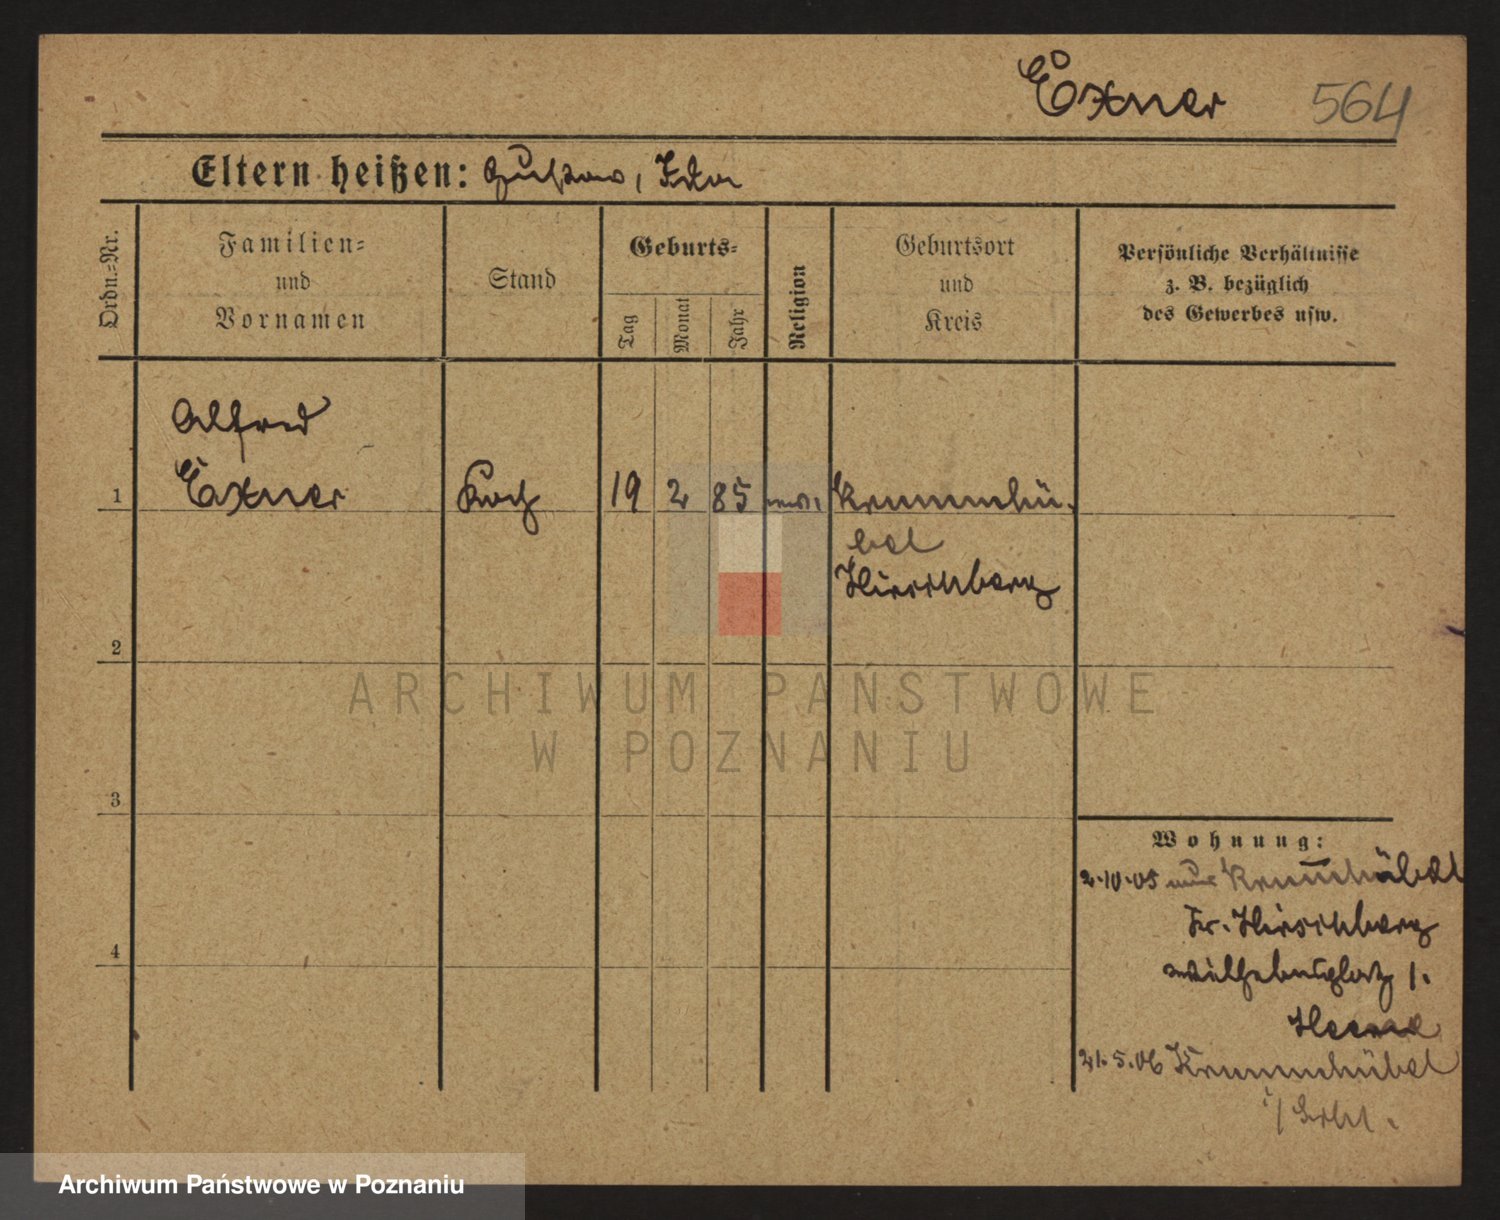 Exner 564
Eltern heißen: Gustav, Ida
Ordn.=Nr.
Familien=
und
Vornamen
Stand
Geburts=
Tag
Monat
Jahr
Religion
Geburtsort
und
Kreis
Persönliche Verhältnisse
z. B. bezüglich
des Gewerbes usw.
Alfred
1 Exner Koch 19 2 85 ev. Krummhü-
bel
Hirschberg
2
3
4
Wohnung:
2.10.05 aus Krum̅hübel
Kr. Hirschberg
Wilhelmsplatz 1.
21.5.06 Krummhübel
ARCHIWUM PAŃSTWOWE
W POZNANIU
Archiwum Państwowe w Poznaniu